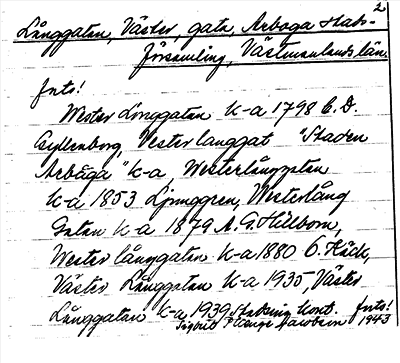 2
Långgatan, Väster, gata, Arboga stads-
församling, Västmanlands län.
Wester Linggatan k-a 1798 C. D.
Gyllenborg, Vester langgat "Staden
Arbåga" k-a, Westerlånggatan
k-a 1853 Ljunggren, Westerlång
Gatan k-a 1879 A. G. Hillbom,
Wester långgatan k-a 1880 C. Käck,
Väster Långgatan k-a 1935, Väster
Långgatan k-a, 1939
1943